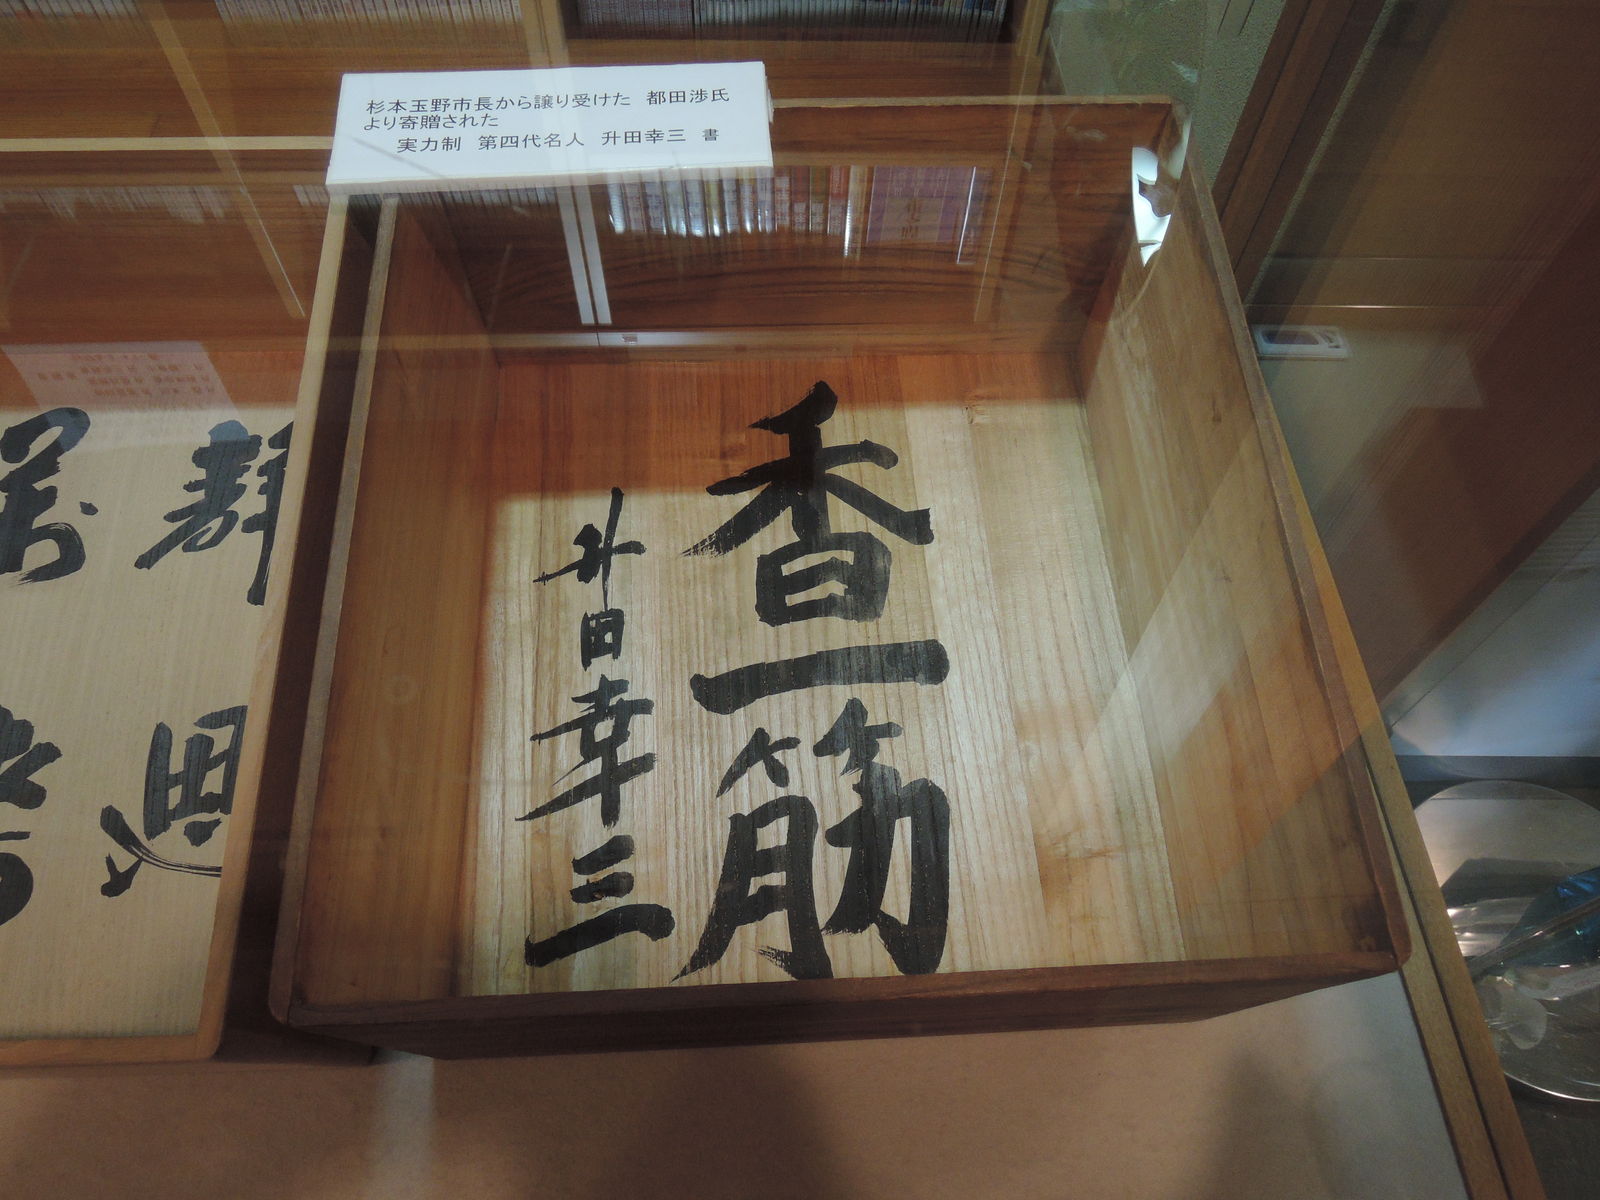 杉本玉野市長から譲り受けた 都田渉氏
より寄贈された
実力制 第四代名人 升田幸三 書
香一筋
升田幸三